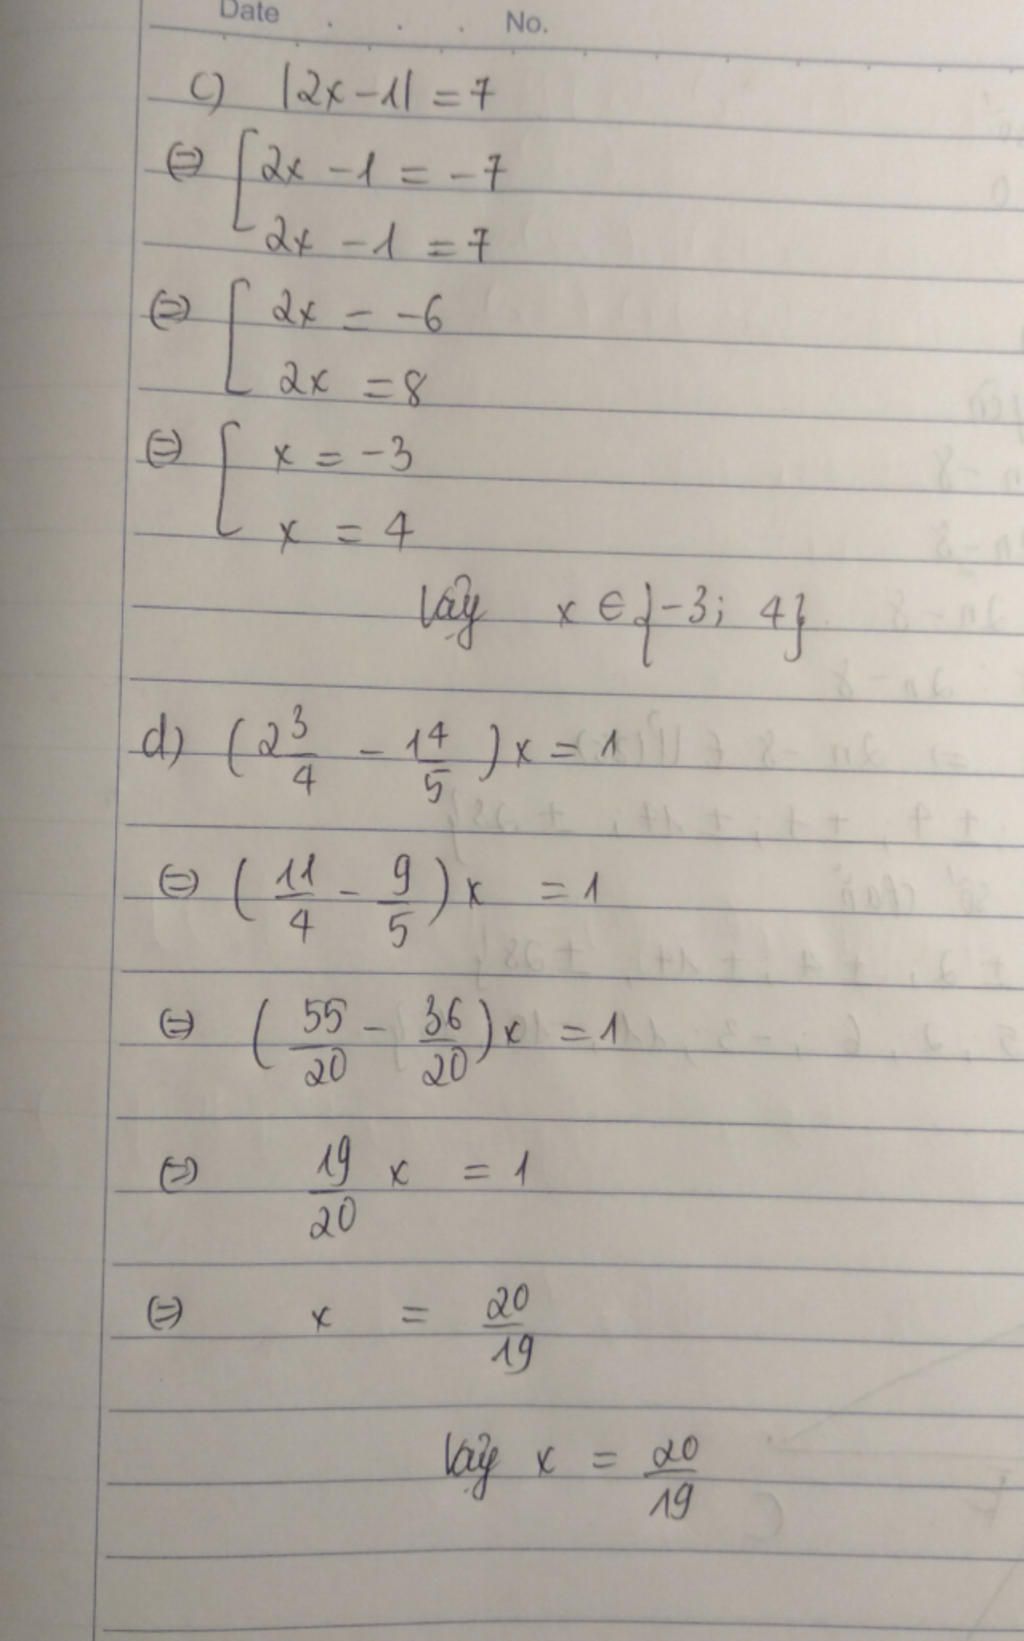 Date . . . No.
c) |2x-1| = 7
⇔ [ 2x - 1 = -7
2x - 1 = 7
⇔ [ 2x = -6
2x = 8
⇔ [ x = -3
x = 4
Vậy x ∈ {-3; 4}
d) (2 3/4 - 1 4/5) x = 1
⇔ (11/4 - 9/5) x = 1
⇔ (55/20 - 36/20) x = 1
⇔ 19/20 x = 1
⇔ x = 20/19
Vậy x = 20/19